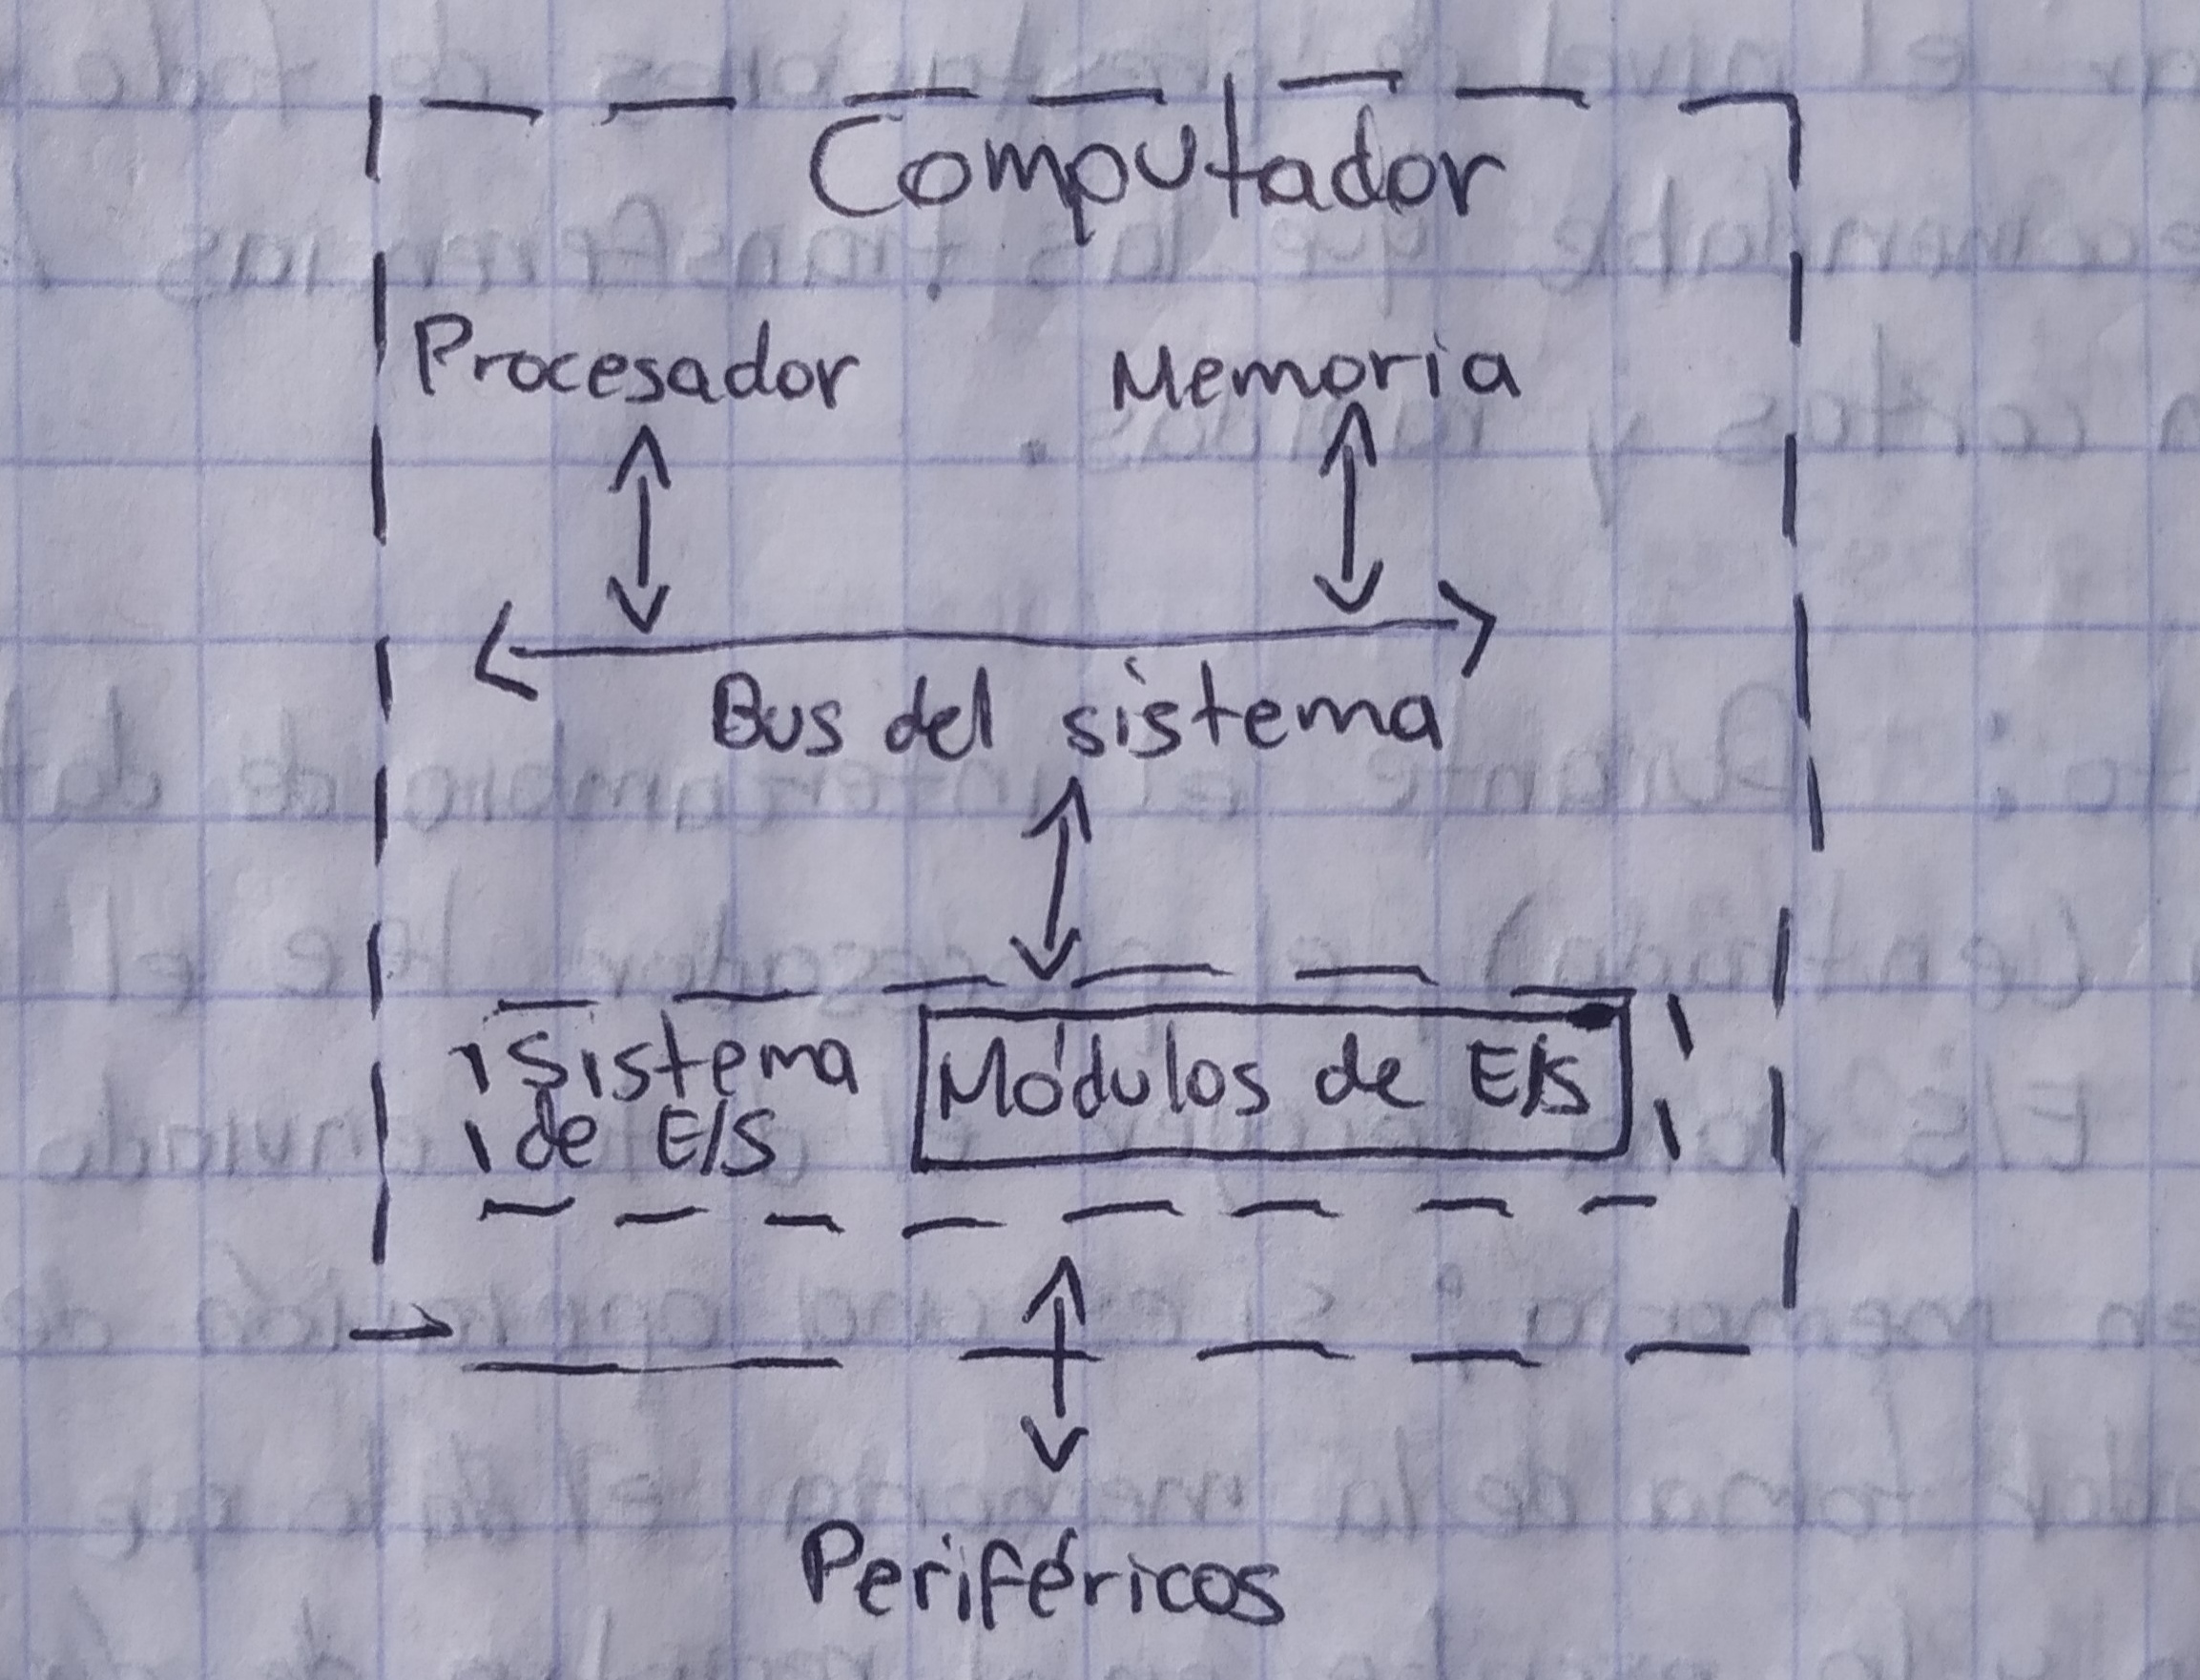 Computador
Procesador Memoria
Bus del sistema
Sistema
de E/S
Módulos de E/S
Periféricos